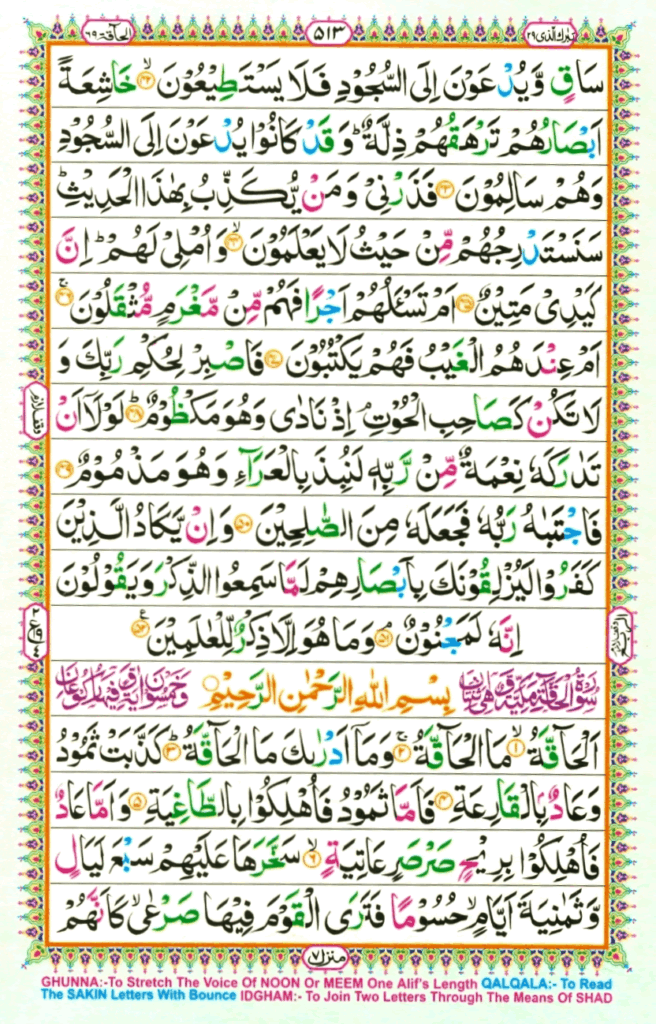 تبٰرك الذی ٢٩
٥١٣
الحآقة ٦٩
سَاقٍ وَّيُدْعَوْنَ اِلَى السُّجُوْدِ فَلَا يَسْتَطِيْعُوْنَ ۙ‏﴿۴۲﴾ خَاشِعَةً
اَبْصَارُهُمْ تَرْهَقُهُمْ ذِلَّةٌ ؕ وَ قَدْ كَانُوْا يُدْعَوْنَ اِلَى السُّجُوْدِ
وَهُمْ سَالِمُوْنَ ﴿۴۳﴾ فَذَرْنِىْ وَ مَنْ يُّكَذِّبُ بِهٰذَا الْحَدِيْثِ ؕ
سَنَسْتَدْرِجُهُمْ مِّنْ حَيْثُ لَا يَعْلَمُوْنَ ۙ﴿۴۴﴾ وَ اُمْلِىْ لَهُمْ ؕ اِنَّ
كَيْدِىْ مَتِيْنٌ ﴿۴۵﴾ اَمْ تَسْـَٔلُهُمْ اَجْرًا فَهُمْ مِّنْ مَّغْرَمٍ مُّثْقَلُوْنَ ۚ﴿۴۶﴾
اَمْ عِنْدَهُمُ الْغَيْبُ فَهُمْ يَكْتُبُوْنَ ﴿۴۷﴾ فَاصْبِرْ لِحُكْمِ رَبِّكَ وَ
لَا تَكُنْ كَصَاحِبِ الْحُوْتِ ۘ اِذْ نَادٰى وَهُوَ مَكْظُوْمٌ ؕ﴿۴۸﴾ لَوْلَاۤ اَنْ
تَدٰرَكَهٗ نِعْمَةٌ مِّنْ رَّبِّهٖ لَنُبِذَ بِالْعَرَآءِ وَ هُوَ مَذْمُوْمٌ ﴿۴۹﴾
فَاجْتَبٰهُ رَبُّهٗ فَجَعَلَهٗ مِنَ الصّٰلِحِيْنَ ﴿۵۰﴾ وَ اِنْ يَّكَادُ الَّذِيْنَ
كَفَرُوْا لَيُزْلِقُوْنَكَ بِاَبْصَارِهِمْ لَمَّا سَمِعُوا الذِّكْرَ وَ يَقُوْلُوْنَ
اِنَّهٗ لَمَجْنُوْنٌ ۘ﴿۵۱﴾ وَمَا هُوَ اِلَّا ذِكْرٌ لِّلْعٰلَمِيْنَ ﴿۵۲﴾
سُوْرَةُ الْحَآقَّةِ مَكِّيَّةٌ وَّهِىَ بِسْمِ اللهِ الرَّحْمٰنِ الرَّحِيْمِ
اَلْحَآقَّةُ ۙ﴿۱﴾ مَا الْحَآقَّةُ ۚ﴿۲﴾ وَمَاۤ اَدْرٰىكَ مَا الْحَآقَّةُ ؕ﴿۳﴾ كَذَّبَتْ ثَمُوْدُ
وَعَادٌۢ بِالْقَارِعَةِ ﴿۴﴾ فَاَمَّا ثَمُوْدُ فَاُهْلِكُوْا بِالطَّاغِيَةِ ﴿۵﴾ وَ اَمَّا عَادٌ
فَاُهْلِكُوْا بِرِيْحٍ صَرْصَرٍ عَاتِيَةٍ ۙ﴿۶﴾ سَخَّرَهَا عَلَيْهِمْ سَبْعَ لَيَالٍ
وَّ ثَمٰنِيَةَ اَيَّامٍ ۙ حُسُوْمًا فَتَرَى الْقَوْمَ فِيْهَا صَرْعٰى ۙ كَاَنَّهُمْ
منزل ٧
GHUNNA:-To Stretch The Voice Of NOON Or MEEM One Alif's Length QALQALA:- To Read
The SAKIN Letters With Bounce IDGHAM:- To Join Two Letters Through The Means Of SHAD